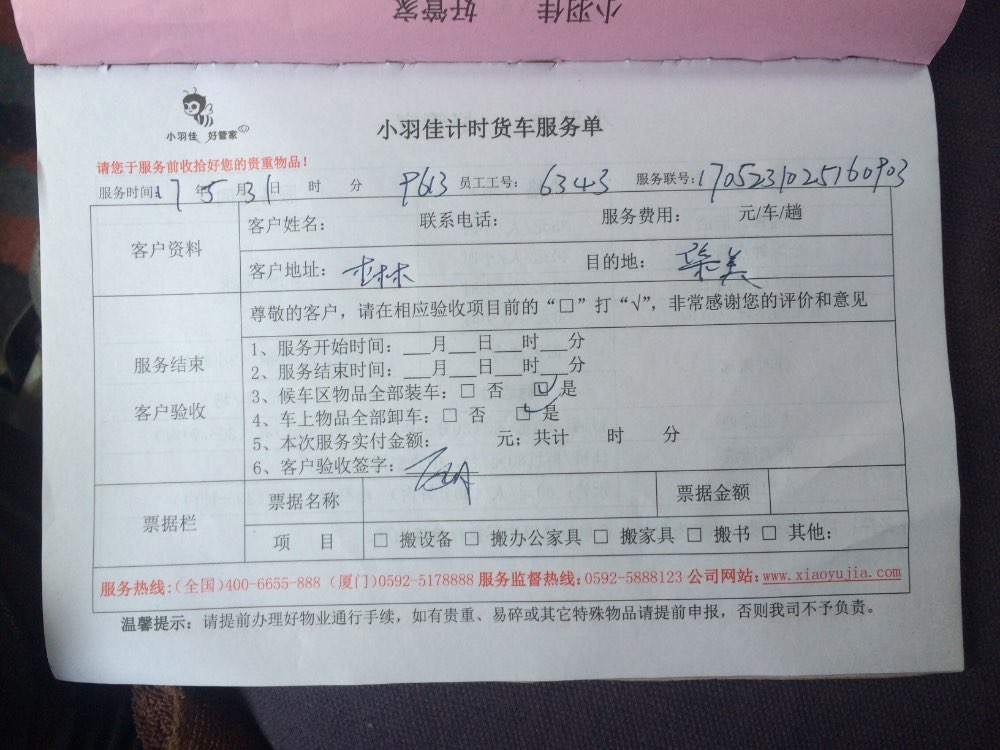 小羽佳 好管家
小羽佳 好管家
小羽佳计时货车服务单
请您于服务前收拾好您的贵重物品!
服务时间:17年5月31日 时 分 9613 员工工号: 6343 服务联号:1705231025760903
客户资料
客户姓名: 联系电话: 服务费用: 元/车/趟
客户地址: 目的地: 集美
服务结束
客户验收
尊敬的客户，请在相应验收项目前的“□”打“√”，非常感谢您的评价和意见
1、服务开始时间:___月___日___时___分
2、服务结束时间:___月___日___时___分
3、候车区物品全部装车:□ 否 ☑ 是
4、车上物品全部卸车:□ 否 ☑ 是
5、本次服务实付金额: 元;共计 时 分
6、客户验收签字:
票据栏
票据名称 票据金额
项 目 □ 搬设备 □ 搬办公家具 □ 搬家具 □ 搬书 □ 其他:
服务热线:(全国)400-6655-888 (厦门)0592-5178888 服务监督热线:0592-5888123 公司网站:www.xiaoyujia.com
温馨提示: 请提前办理好物业通行手续，如有贵重、易碎或其它特殊物品请提前申报，否则我司不予负责。